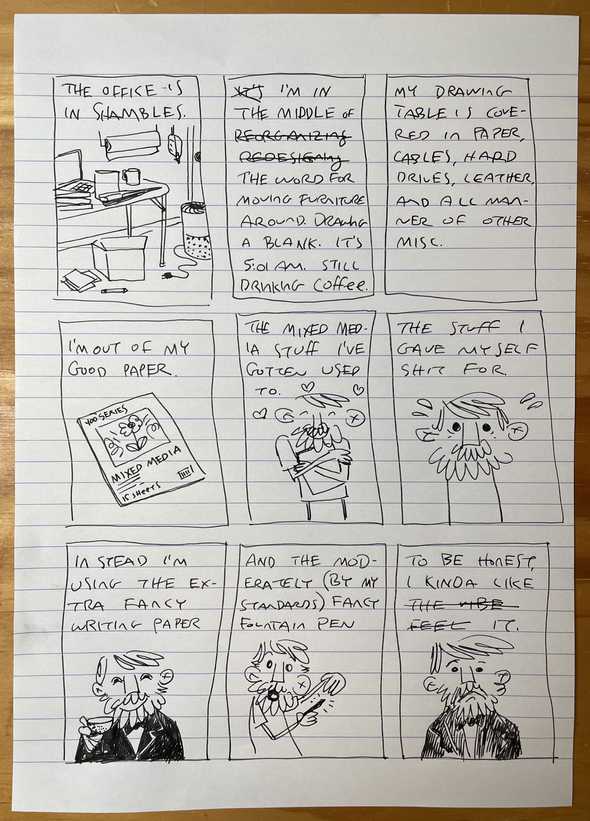 THE OFFICE IS
IN SHAMBLES.
I'M IN
THE MIDDLE OF
REORGANIZING
REDESIGNING
THE WORD FOR
MOVING FURNITURE
AROUND. DRAWING
A BLANK. IT'S
5:01 AM. STILL
DRINKING COFFEE.
MY DRAWING
TABLE IS COVE-
RED IN PAPER,
CABLES, HARD
DRIVES, LEATHER,
AND ALL MAN-
NER OF OTHER
MISC.
I'M OUT OF MY
GOOD PAPER.
400 SERIES
MIXED MEDIA
15 SHEETS
THE MIXED MED-
IA STUFF I'VE
GOTTEN USED
TO.
THE STUFF I
GAVE MYSELF
SHIT FOR
IN STEAD I'M
USING THE EX-
TRA FANCY
WRITING PAPER
AND THE MOD-
ERATELY (BY MY
STANDARDS) FANCY
FOUNTAIN PEN
TO BE HONEST,
I KINDA LIKE
THE VIBE
FEEL IT.